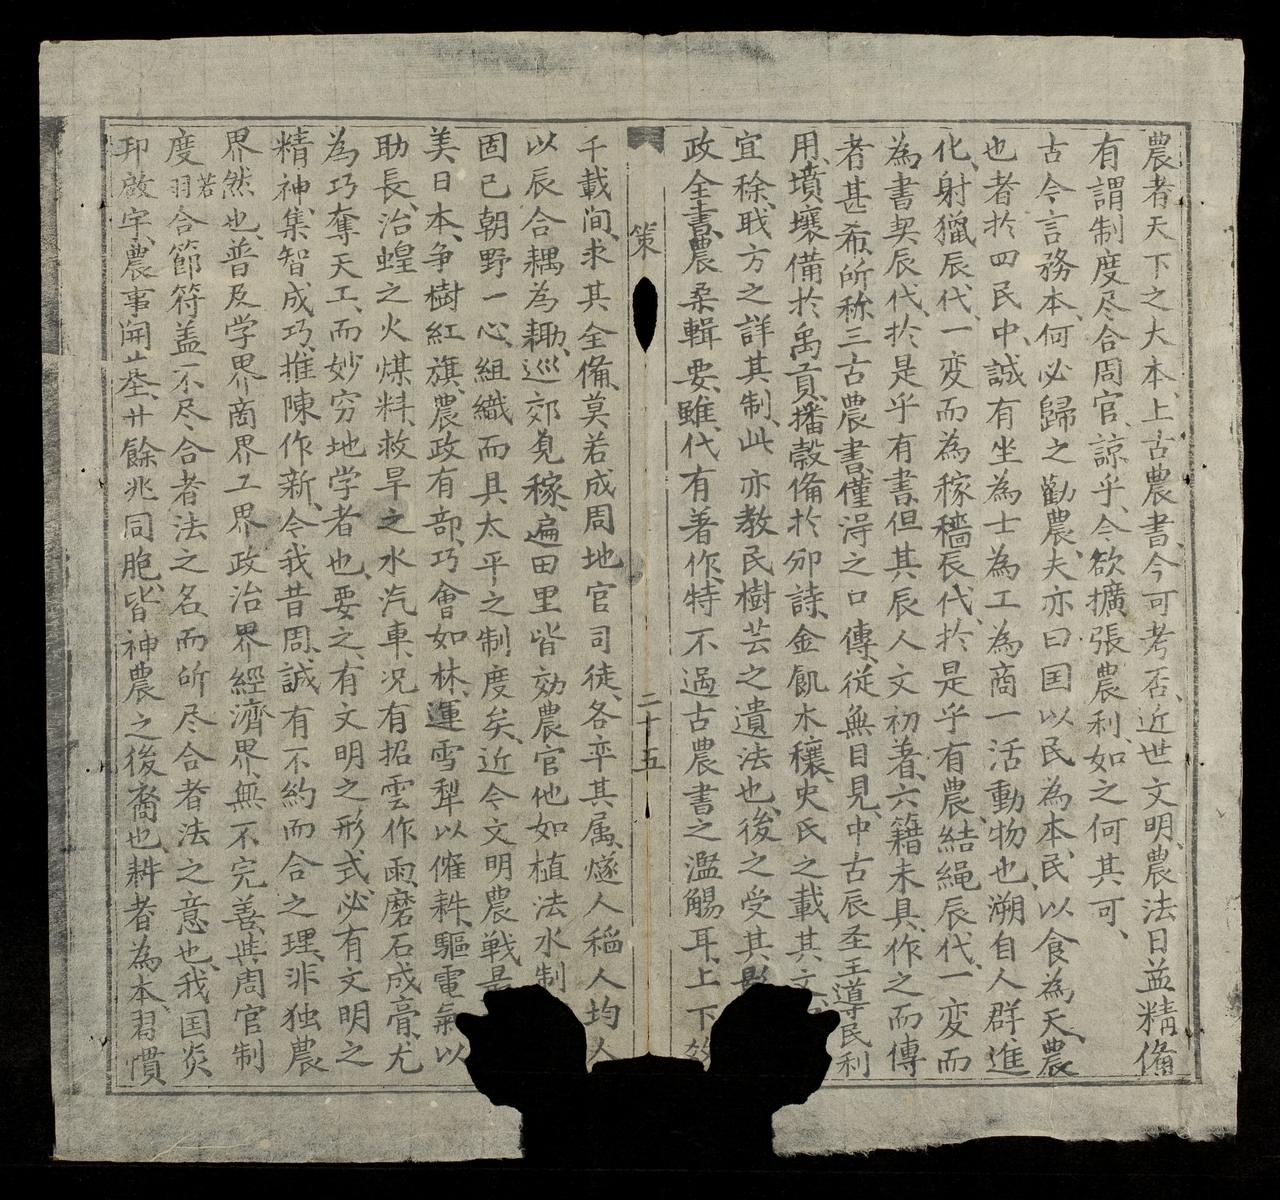 農者天下之大本、上古農書、今可考否、近世文明、農法日益精備
有謂制度尽合周官、諒乎、今欲擴張農利、如之何其可、
古今言務本、何必歸之勸農、夫亦曰囯以民為本、民以食為天、農
也者於四民中、誠有坐為士為工為商一活動物也、溯自人群進
化、射獵辰代、一变而為稼穡辰代、於是乎有農、結繩辰代、一变而
為書契辰代、於是乎有書、但其辰人文初著、六籍未具、作之而傳
者甚希、所称三古農書、僅淂之口傳、従無目見、中古辰圣王導民利
用、墳壤備於禹貢、播穀備於邠詩、金飢木穰、史氏之載其文、
宜稌、職方之詳其制、此亦教民樹芸之遺法也、後之受其
政全書、農桑輯要、雖代有著作、特不過古農書之濫觴耳、上下
策
二十五
千載间、求其全備、莫若成周地官司徒、各率其属、燧人稲人均人
以辰合耦為耡、巡郊覓稼、遍田里皆効農官他如植法水制
固已朝野一心、組織而具太平之制度矣、近今文明農戦
美、日本、争樹紅旗、農政有部、巧會如林、運雪犁以傕耕、驅電氣以
助長、治蝗之火煤料、救旱之水汽車、况有招雲作雨、磨石成膏、尤
為巧奪天工、而妙穷地学者也、要之、有文明之形式、必有文明之
精神、集智成巧、推陳作新、今我昔周、誠有不約而合之理、非独農
界然也、普及学界、商界工界政治界經濟界、無不完善、與周官制
度若羽合節符盖不尽合者法之名而所尽合者法之意也、我囯炎
卬啟宇、農事開丵、廿餘兆同胞、皆神農之後裔也、耕者為本、習慣